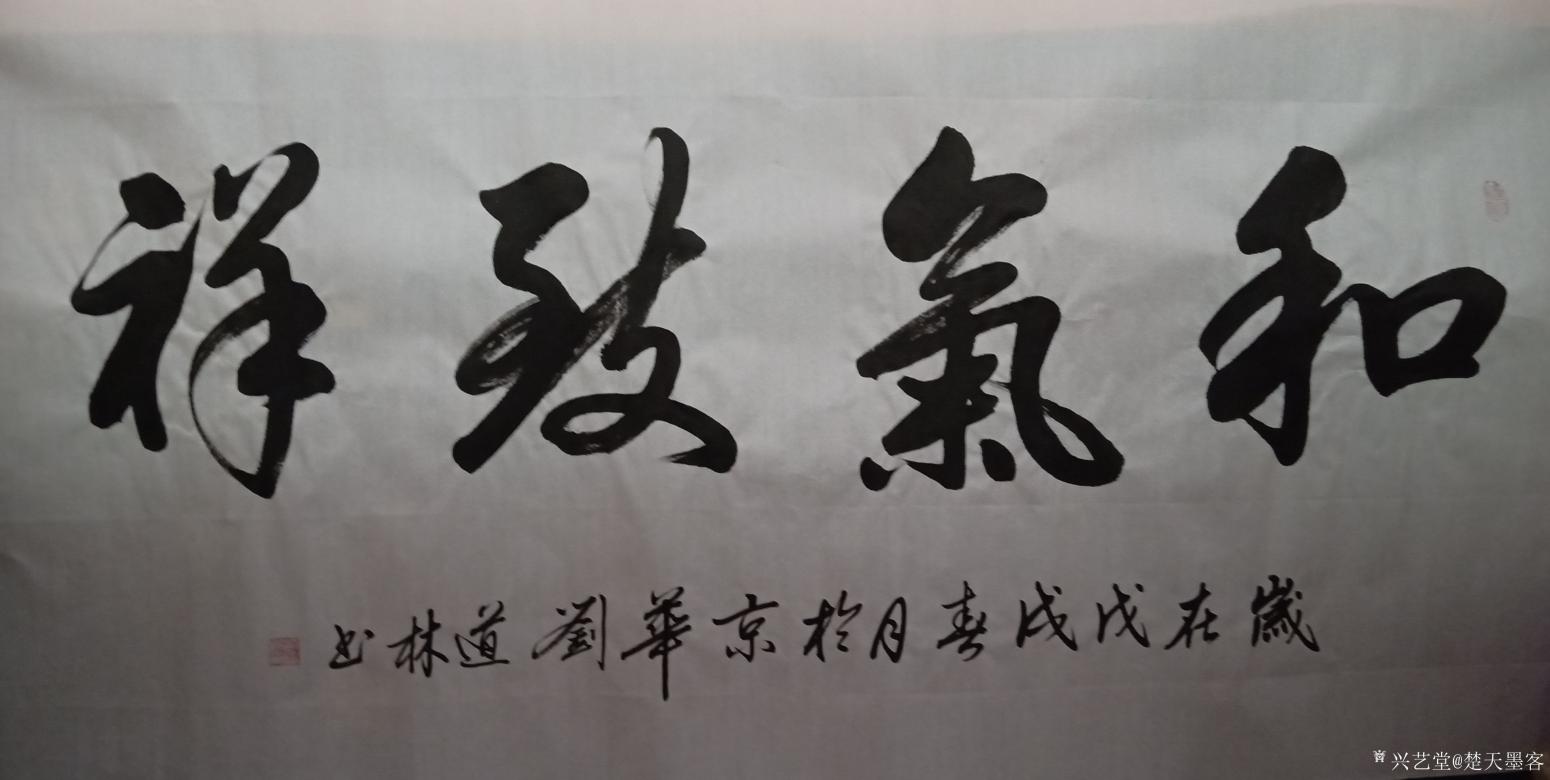 和氣致祥
歲在戊戌春月於京華劉道林书
兴艺堂@楚天墨客